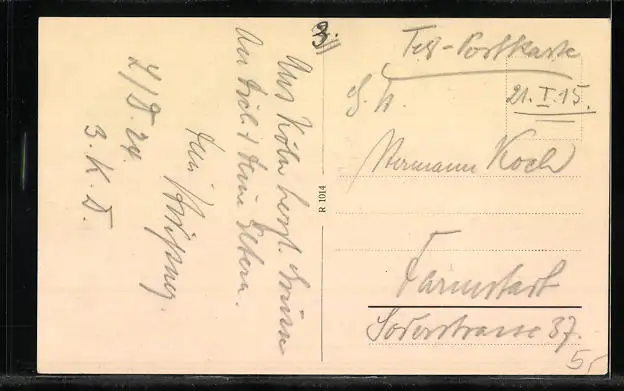 3.
Feld-Postkarte
21. I. 15.
S. H.
Hermann Koch
Darmstadt
Soderstrasse 37.
5,-
R 1014
Aus Köln herzl. Grüsse
an Dich & Deine Eltern.
Dein